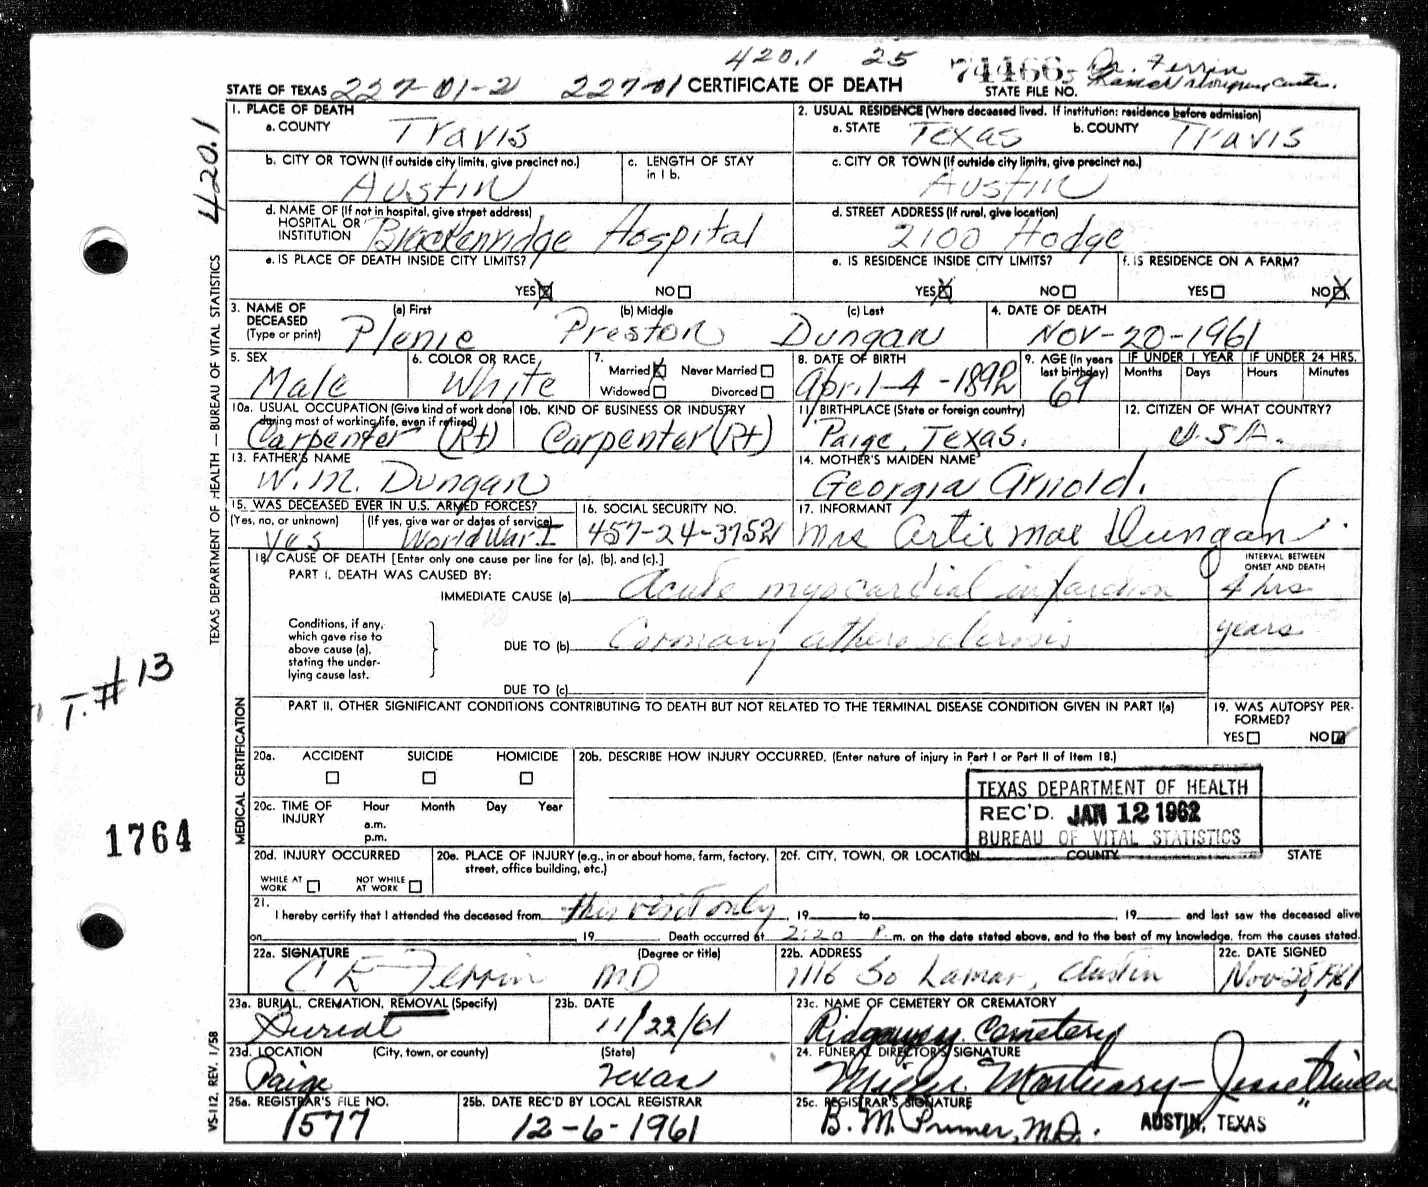 420.1 25 74466 Dr. Ferrin
STATE OF TEXAS 227-01-2 227-01 CERTIFICATE OF DEATH STATE FILE NO.
1. PLACE OF DEATH
a. COUNTY Travis
2. USUAL RESIDENCE (Where deceased lived. If institution: residence before admission)
a. STATE Texas b. COUNTY Travis
b. CITY OR TOWN (If outside city limits, give precinct no.) Austin
c. LENGTH OF STAY in 1 b.
c. CITY OR TOWN (If outside city limits, give precinct no.) Austin
d. NAME OF (If not in hospital, give street address)
HOSPITAL OR
INSTITUTION Brackenridge Hospital
d. STREET ADDRESS (If rural, give location)
2100 Hodge
e. IS PLACE OF DEATH INSIDE CITY LIMITS?
YES NO
e. IS RESIDENCE INSIDE CITY LIMITS?
YES NO
f. IS RESIDENCE ON A FARM?
YES NO
3. NAME OF DECEASED (Type or print)
(a) First Plenie (b) Middle Preston (c) Last Dungan
4. DATE OF DEATH
Nov-20-1961
5. SEX
Male
6. COLOR OR RACE
White
7.
Married Never Married
Widowed Divorced
8. DATE OF BIRTH
April-4-1892
9. AGE (in years last birthday)
69
IF UNDER 1 YEAR IF UNDER 24 HRS.
Months Days Hours Minutes
10a. USUAL OCCUPATION (Give kind of work done during most of working life, even if retired)
Carpenter (Rt)
10b. KIND OF BUSINESS OR INDUSTRY
Carpenter (Rt)
11. BIRTHPLACE (State or foreign country)
Paige, Texas.
12. CITIZEN OF WHAT COUNTRY?
U.S.A.
13. FATHER'S NAME
W. M. Dungan
14. MOTHER'S MAIDEN NAME
Georgia Arnold.
15. WAS DECEASED EVER IN U.S. ARMED FORCES?
(Yes, no, or unknown) (If yes, give war or dates of service)
Yes World War I
16. SOCIAL SECURITY NO.
457-24-3752
17. INFORMANT
Mrs Artie Mae Dungan
18. CAUSE OF DEATH [Enter only one cause per line for (a), (b), and (c).]
INTERVAL BETWEEN ONSET AND DEATH
PART I. DEATH WAS CAUSED BY:
IMMEDIATE CAUSE (a) Acute myocardial infarction 4 hrs
Conditions, if any,
which gave rise to
above cause (a),
stating the under-
lying cause last.
DUE TO (b) Coronary atherosclerosis years
DUE TO (c)
PART II. OTHER SIGNIFICANT CONDITIONS CONTRIBUTING TO DEATH BUT NOT RELATED TO THE TERMINAL DISEASE CONDITION GIVEN IN PART I(a)
19. WAS AUTOPSY PER-
FORMED?
YES NO
20a. ACCIDENT SUICIDE HOMICIDE
20b. DESCRIBE HOW INJURY OCCURRED. (Enter nature of injury in Part I or Part II of Item 18.)
TEXAS DEPARTMENT OF HEALTH
REC'D. JAN 12 1962
BUREAU OF VITAL STATISTICS
20c. TIME OF INJURY Hour Month Day Year
a.m.
p.m.
20d. INJURY OCCURRED
WHILE AT WORK NOT WHILE AT WORK
20e. PLACE OF INJURY (e.g., in or about home, farm, factory, street, office building, etc.)
20f. CITY, TOWN, OR LOCATION COUNTY STATE
21.
I hereby certify that I attended the deceased from this visit only, 19 to , 19 and last saw the deceased alive
on , 19 Death occurred at 2:20 P.m. on the date stated above, and to the best of my knowledge, from the causes stated.
22a. SIGNATURE (Degree or title)
C E Ferrin MD
22b. ADDRESS
1116 So Lamar, Austin
22c. DATE SIGNED
23a. BURIAL, CREMATION, REMOVAL (Specify)
Burial
23b. DATE
11/22/61
23c. NAME OF CEMETERY OR CREMATORY
Ridgeway Cemetery
23d. LOCATION (City, town, or county) (State)
Paige Texas
24. FUNERAL DIRECTOR'S SIGNATURE
25a. REGISTRAR'S FILE NO.
1577
25b. DATE REC'D BY LOCAL REGISTRAR
12-6-1961
25c. REGISTRAR'S SIGNATURE
B. M. Primer, M.D. AUSTIN, TEXAS
420.1
TEXAS DEPARTMENT OF HEALTH — BUREAU OF VITAL STATISTICS
MEDICAL CERTIFICATION
T. #13
1764
VS-112, REV. 1/58